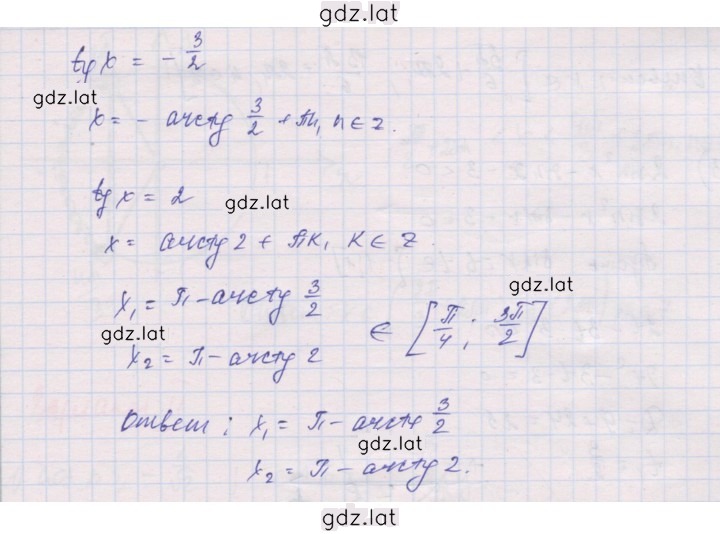 gdz.lat
tg x = - 3/2
gdz.lat
x = - arctg 3/2 + πn, n ∈ z.
tg x = 2
gdz.lat
x = arctg 2 + πk, k ∈ z.
x₁ = π - arctg 3/2
gdz.lat
∈ [π/4; 3π/2]
gdz.lat
x₂ = π - arctg 2
Ответ: x₁ = π - arctg 3/2
gdz.lat
x₂ = π - arctg 2.
gdz.lat